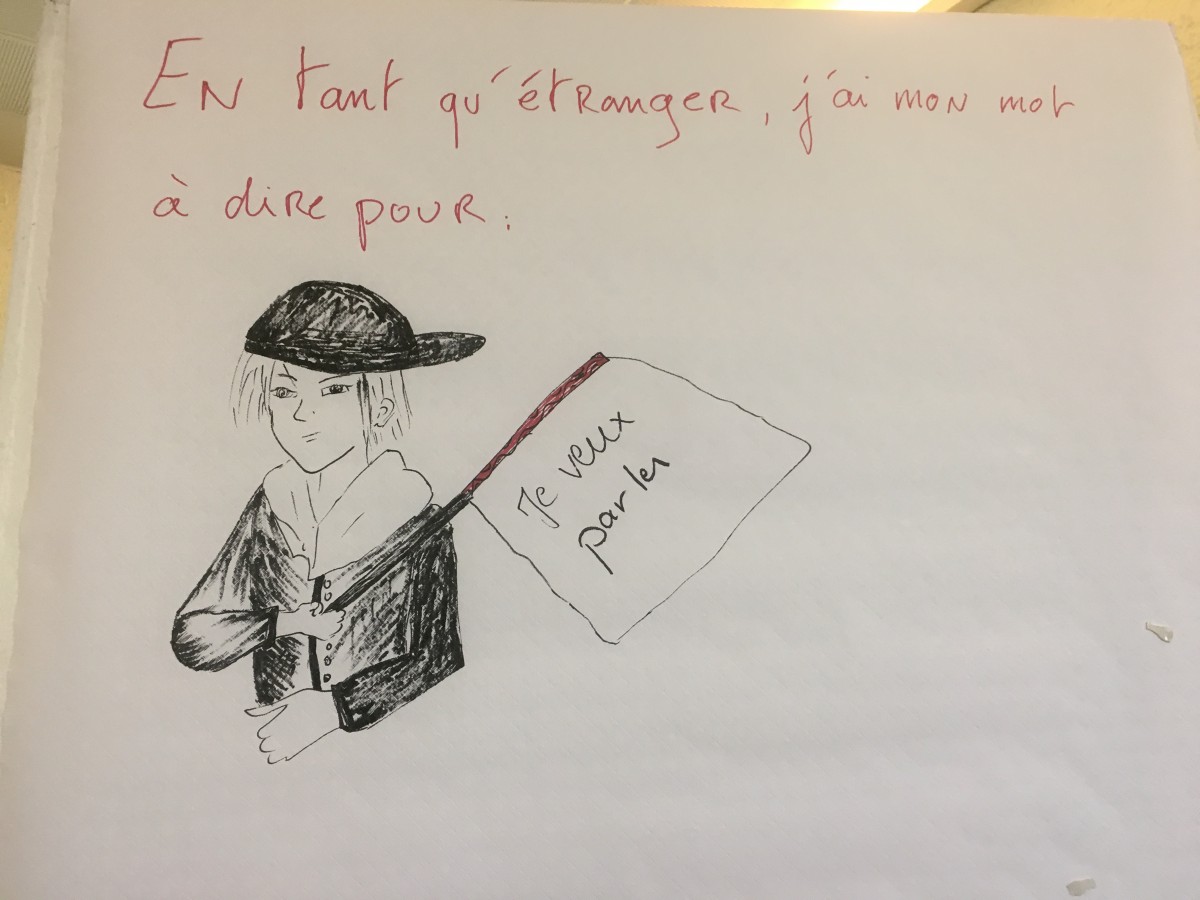 En tant qu'étranger, j'ai mon mot
à dire pour :
Je veux
parler